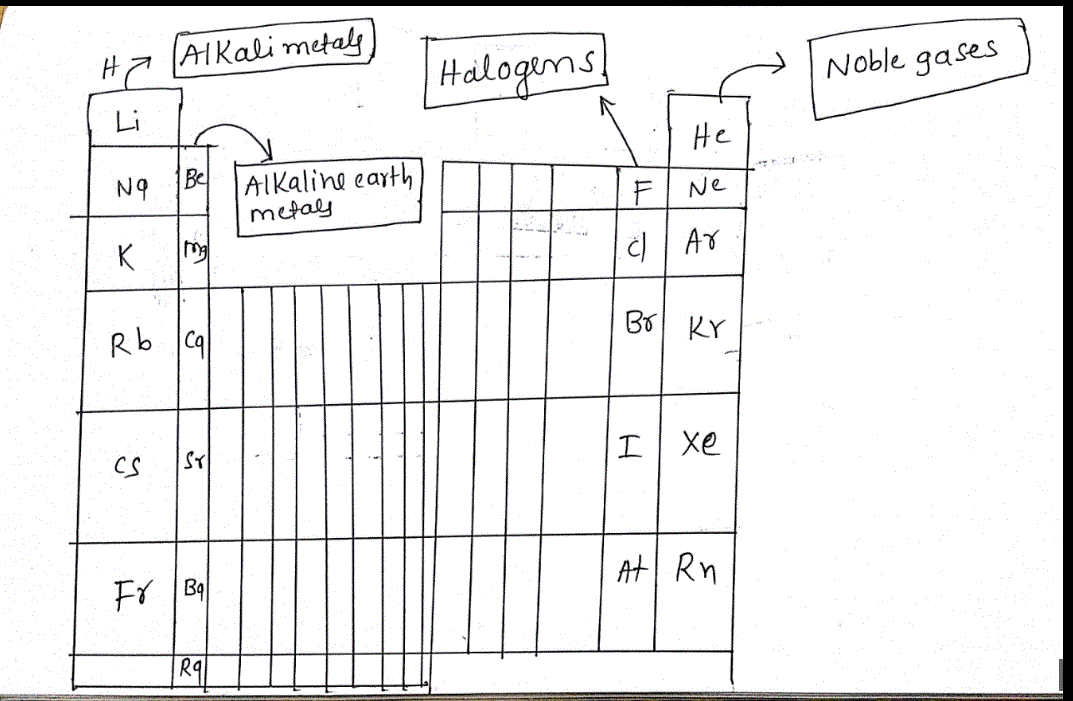 H Alkali metals
Halogens
Noble gases
Li
He
Na Be
Alkaline earth
metals
F Ne
K Mg
Cl Ar
Rb Ca
Br Kr
Cs Sr
I Xe
Fr Ba
At Rn
Ra